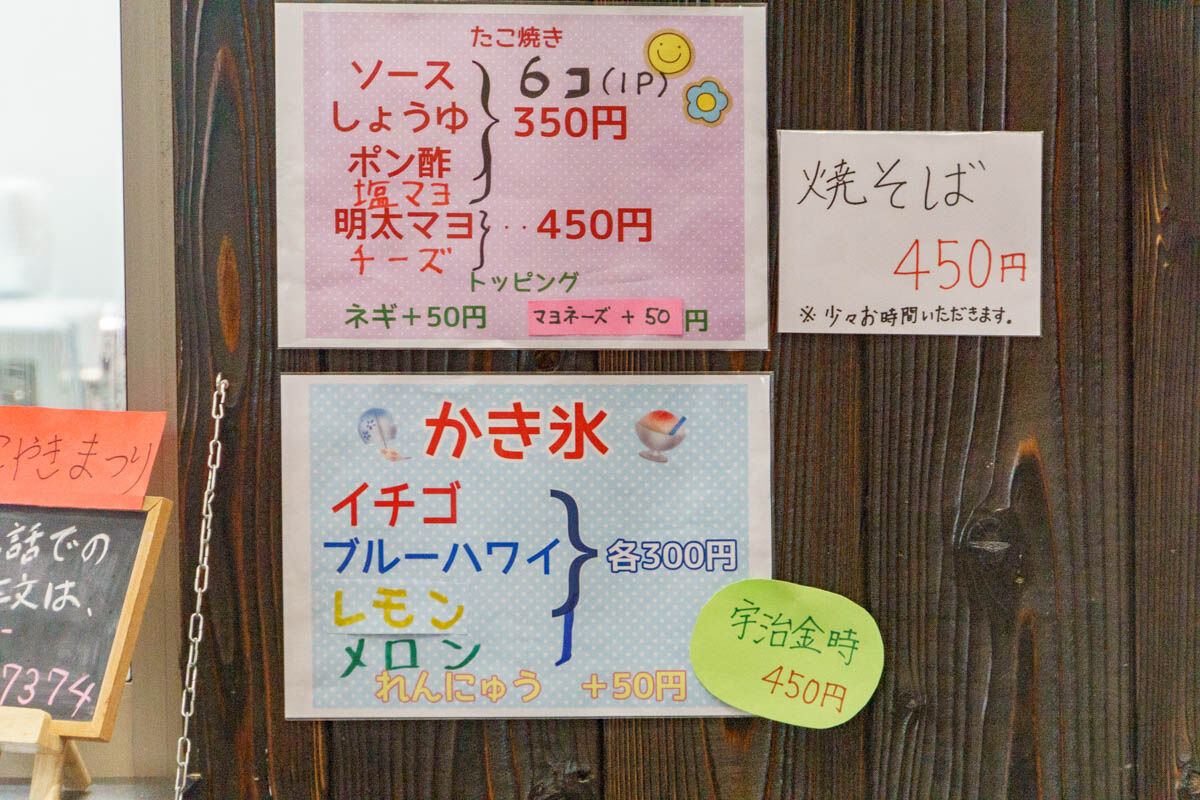 たこ焼き
ソース
6コ(1P)
しょうゆ
350円
ポン酢
塩マヨ
明太マヨ‥450円
チーズ
トッピング
ネギ+50円
マヨネーズ +50円
焼そば
450円
※少々お時間いただきます。
かき氷
イチゴ
ブルーハワイ
各300円
レモン
メロン
れんにゅう +50円
宇治金時
450円
やきまつり
話での
文は、
7374